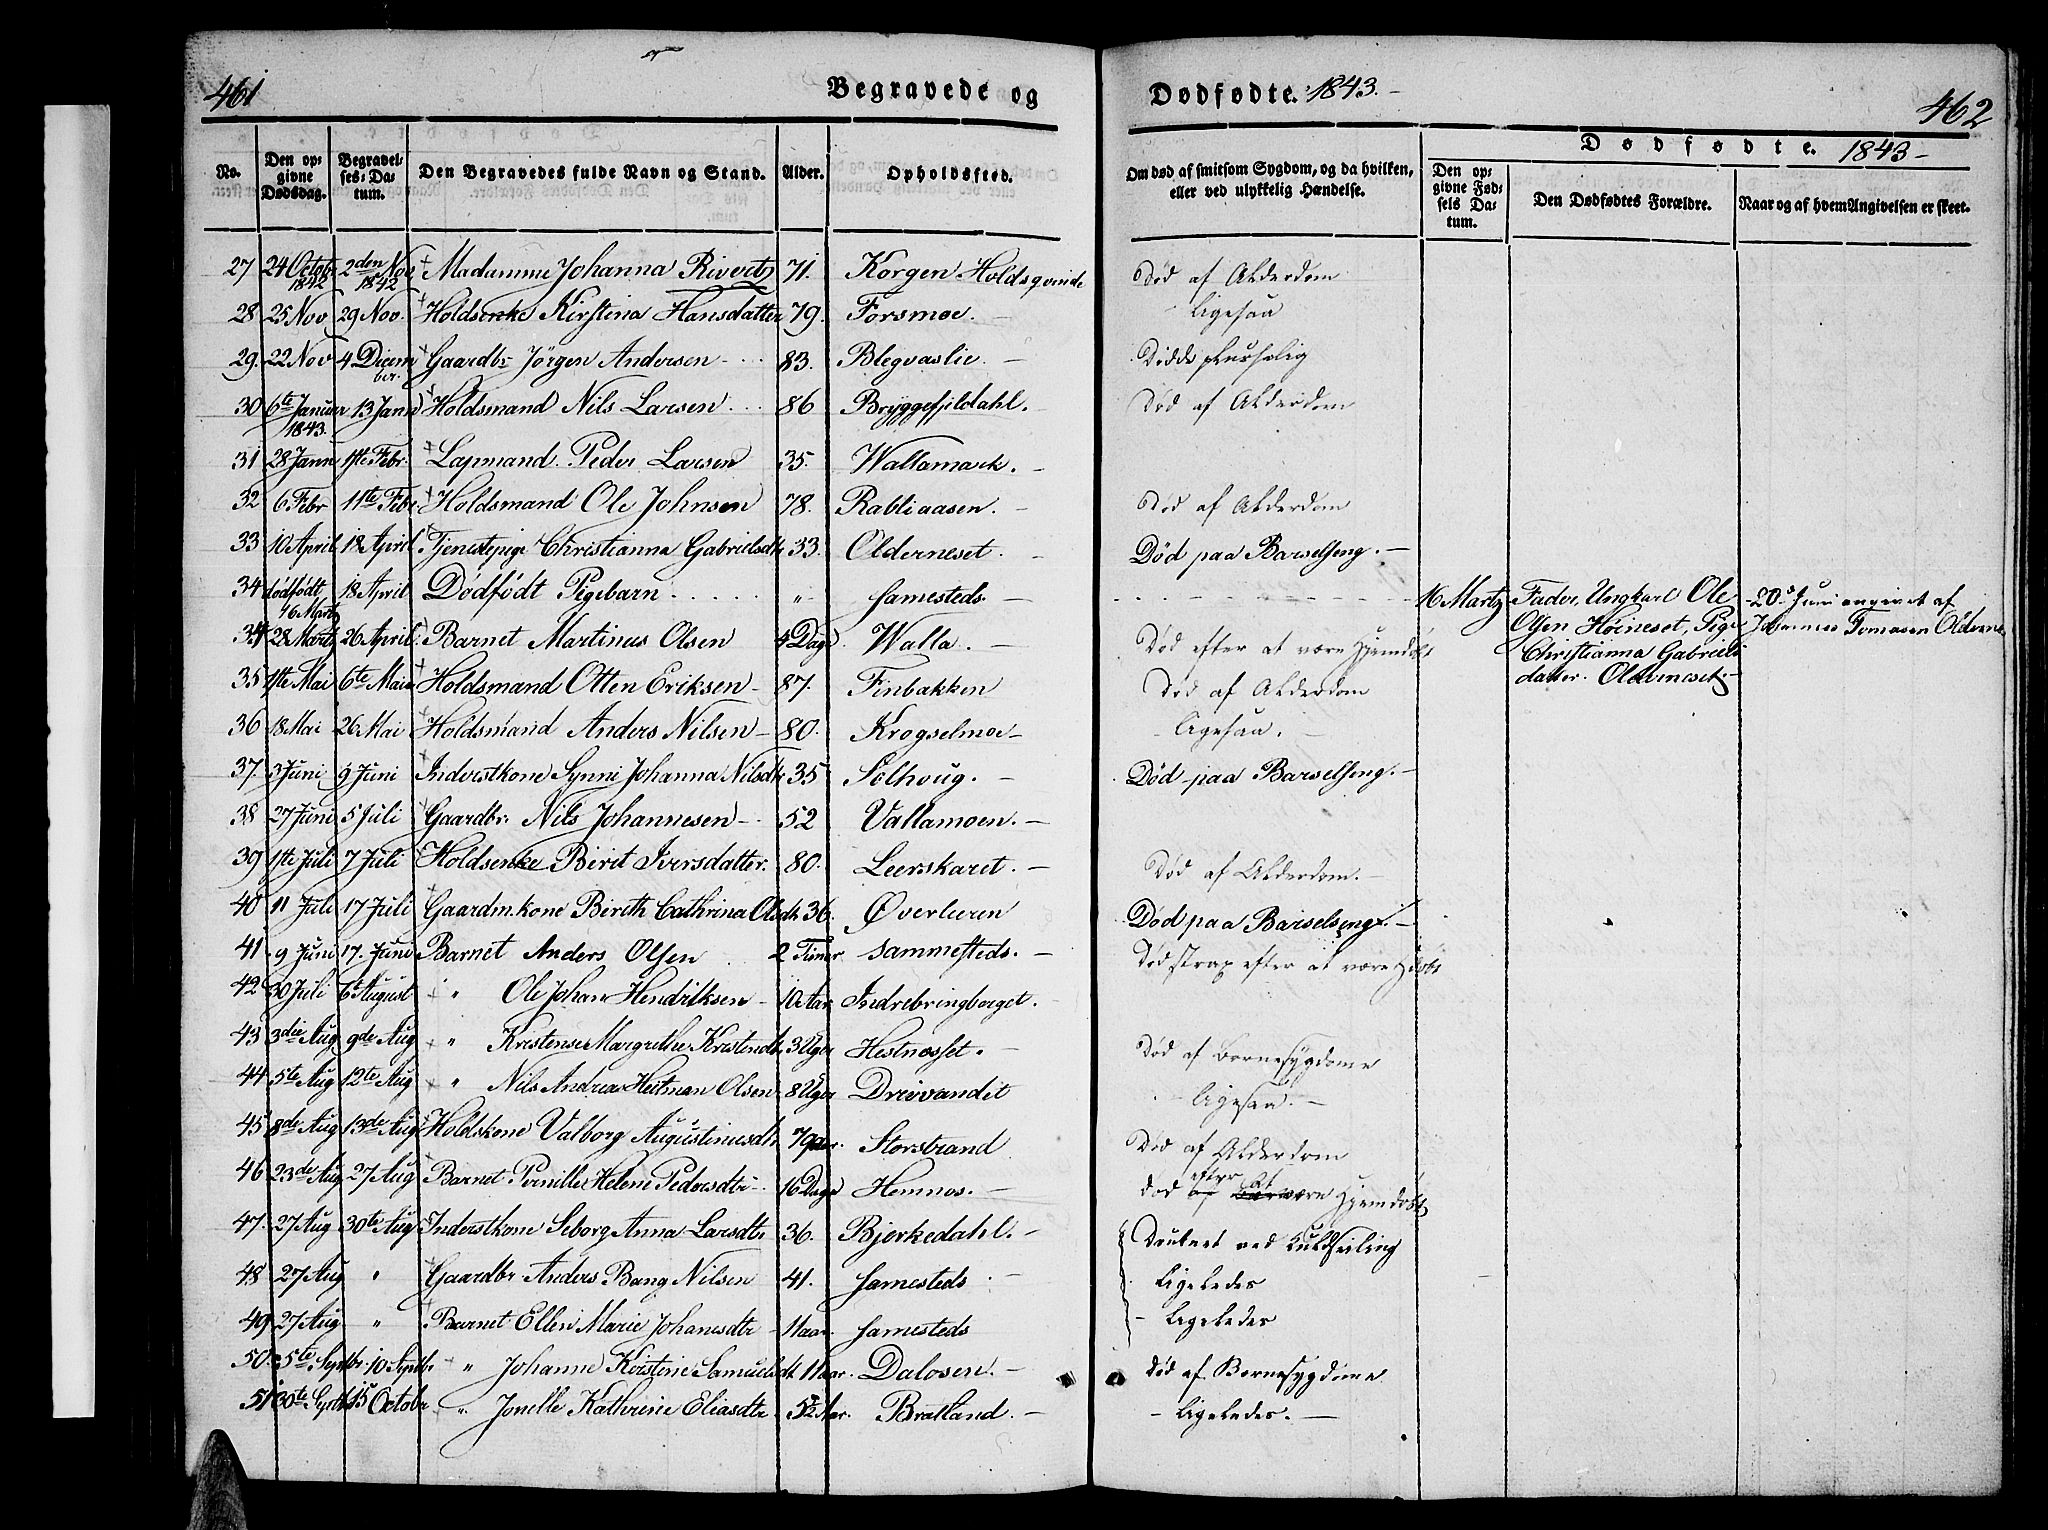 461
Begravede og
Dødfødte. 1843.
462
No.
Den opgivne Dødsdag.
Begravelses-Datum.
Den Begravedes fulde Navn og Stand.
Alder.
Opholdssted.
Om død af smitsom Sygdom, og da hvilken, eller ved ulykkelig Hændelse.
Dødfødte. 1843
Den opgivne Fødsels Datum.
Den Dødfødtes Forældre.
Naar og af hvem Angivelsen er skeet.
27 24 Octob 1842 2den Nov 1842 Madamme Johanna Rivertz 71. Korgen Holdsqvinde Død af Alderdom
28 25 Nov 29 Nov. Holdsenke Kirstina Hansdatter 79. Forsmoe. Ligesaa
29. 22 Nov 4 Dicember. Gaardbr Jørgen Andersen 83. Blegvaslie. Dødde
30 6te Januar 1843. 13 Jann Holdsmand Nils Larsen 86 Bryggefjeldahl. Død af Alderdom
31 28 Jann 1ste Febr. Lapmand. Peder Larsen 35. Wallamark.
32 6 Febr 11te Febr Holdsmand Ole Johnsen 78. Rabliaasen. Død af Alderdom
33 10 April 18 April Tjenestepige Christianna Gabrielsdtr 33. Olderneset. Død paa Barselseng.
34 dødfødt 16 Martz 18 April Dødfødt Pigebarn „ samesteds. 16 Martz Fader, Ungkarl Ole Olsen Høineset, Pige Christianna Gabrielsdatter. Olderneset. 20. Juni angivet af Johannes Tomasen Olderne
34 28 Martz 26 April Barnet Martinus Olsen 4 Dage Walla. Død efter at være Hjemdøbt
35 1ste Mai 6te Mai Holdsmand Otten Eriksen 87. Finbakken Død af Alderdom
36 18 Mai 26 Mai Holdsmand Anders Nilsen 80. Krogselmoe Ligesaa.
37. 3 Juni 9 Juni Inderstkone Synni Johanna Nilsdtr 35 Solhoug. Død paa Barselseng.
38 27 Juni 5 Juli Gaardbr. Nils Johannesen 52 Vallamoen.
39 1ste Juli 7 Juli Holdsenke Birit Iversdatter. 80. Leerskaret. Død af Alderdom.
40 11 Juli 17 Juli Gaardm.kone Bireth Cathrina Olsdtr 36. Øverleiren Død paa Barselseng.
41. 9 Juni 17. Juni Barnet Anders Olsen 2 Timer sammesteds. Død strax efter at være Hdøbt
42 30 Juli 6t August „ Ole Johan Hendriksen 10 Aar Indrebringborget.
43 3die Aug 9de Aug „ Kristense Margrethe Kristendtr 3 Uger Hestnesset. Død af Børnesygdome
44 5te Aug 12te Aug „ Nils Andreas Heitman Olsen 8 Uger Dreivandet Ligesaa.
45 8de Aug 13de Aug Holdskone Valborg Augustinusdtr 79 aar. Storstrand Død af Alderdom
46 23de Aug 27 Aug Barnet Pernille Helene Pedersdtr 16 Dage Hemnes. død efter at være Hjemdøbt
47. 27 Aug 30te Aug Inderstkone Seborg Anna Larsdtr 36. Bjerkedahl. Druknet ved Kuldseiling
48 27 Aug „ Gaardbr Anders Bang Nilsen 41. samesteds Ligeledes
49 27 Aug „ Barnet Ellen Marie Johanesdtr 11 aar. samesteds Ligeledes
50. 5te Septbr. 10 Septbr „ Johanne Kristine Samuelsdt 11 aar. Dalosen. Død af Børnesygdome
51 30te Septb 15 Octobr „ Jonelle Kathrine Eliasdtr 5½ Aar. Bratland. Ligeledes.